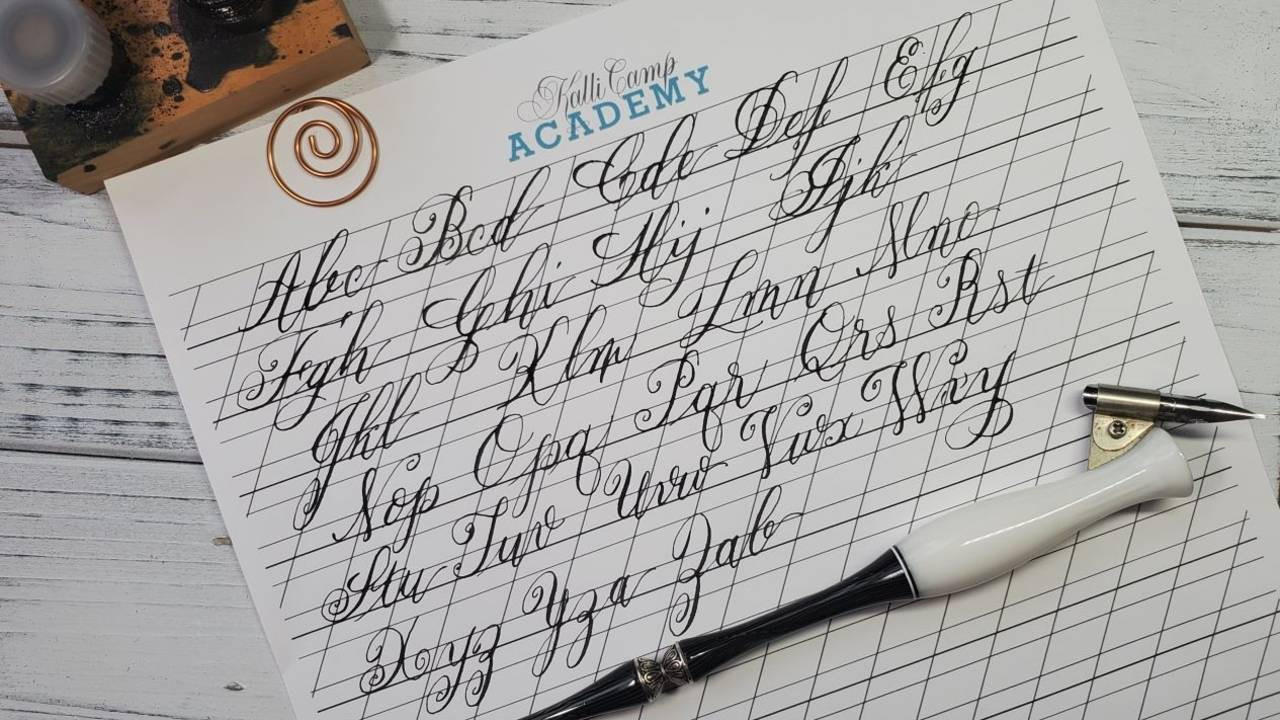 Kalli Camp
ACADEMY
Abc Bcd Cde Def Efg
Fgh Ghi Hij Ijk
Jkl Klm Lmn Mno
Nop Opq Pqr Qrs Rst
Stu Tuv Uvw Vwx Wxy
Xyz Yza Zab